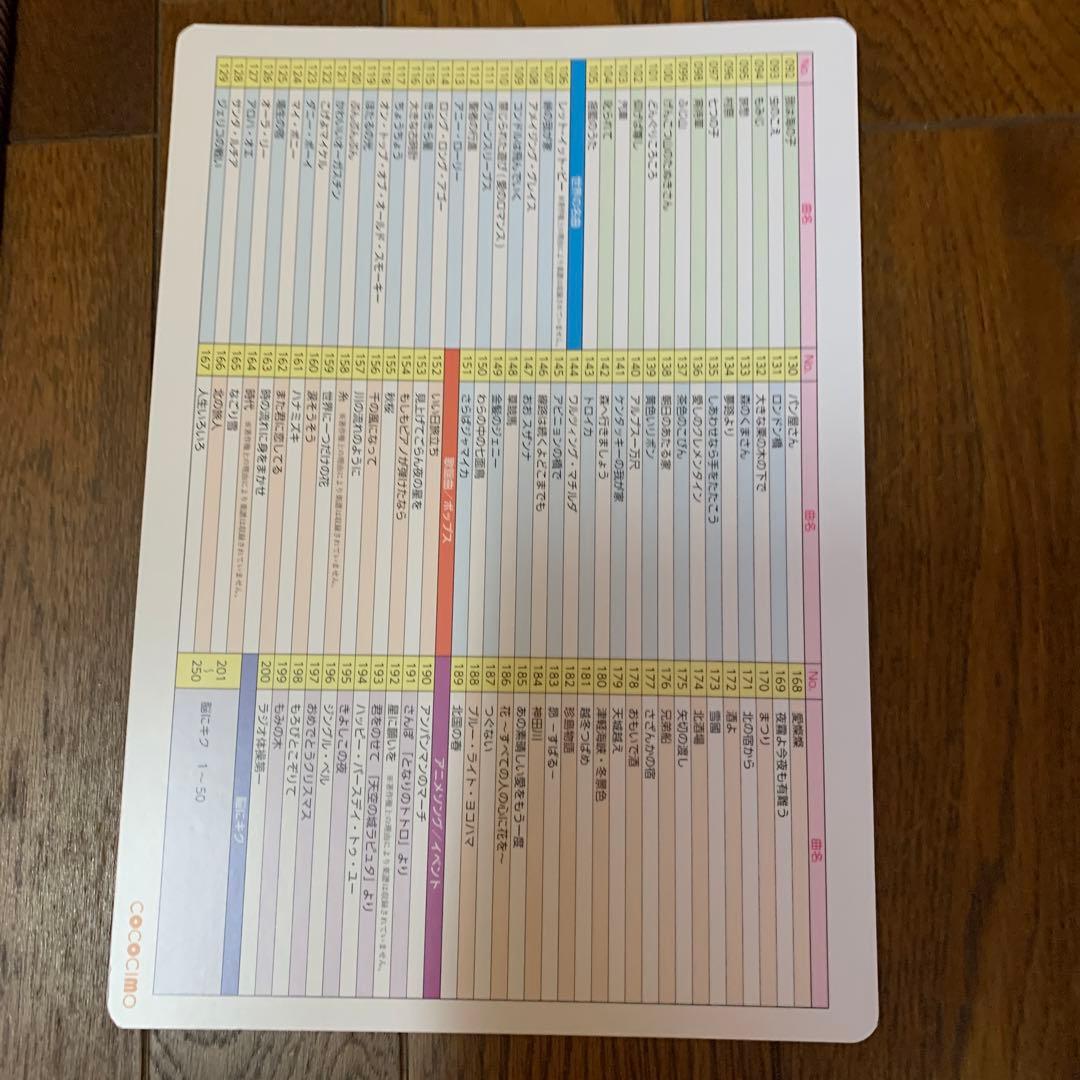 No. 曲名
092 我は海の子
093 虫のこえ
094 もみじ
095 故郷
096 村祭
097 七つの子
098
099 ふじ山
100 げんこつ山のたぬきさん
101 どんぐりころころ
102
103 汽車
104 叱られて
105
世界の名曲
106 レット・イット・ビー ※著作権上の理由により楽譜は収録されていません。
107 峠の我が家
108 アメイジング・グレイス
109 コンドルは飛んでいく
110 禁じられた遊び(愛のロマンス)
111 グリーンスリーブス
112 聖者の行進
113 アニー・ローリー
114 ロング・ロング・アゴー
115 きらきら星
116 大きな古時計
117 ちょうちょう
118 オン・トップ・オブ・オールド・スモーキー
119 ほたるの光
120 ぶんぶんぶん
121 かわいいオーガスチン
122 こげよマイケル
123 ダニー・ボーイ
124 マイ・ボニー
125
126 オーラ・リー
127 アロハ・オエ
128 サンタ・ルチア
129 ジェリコの戦い
No. 曲名
130 パン屋さん
131 ロンドン橋
132 大きな栗の木の下で
133 森のくまさん
134 夢路より
135 しあわせなら手をたたこう
136 愛しのクレメンタイン
137 茶色のこびん
138 朝日のあたる家
139 黄色いリボン
140 アルプス一万尺
141 ケンタッキーの我が家
142 森へ行きましょう
143 トロイカ
144 ワルツィング・マチルダ
145 アビニョンの橋で
146 線路は続くよどこまでも
147 おおスザンナ
148 草競馬
149 金髪のジェニー
150 わらの中の七面鳥
151 さらばジャマイカ
歌謡曲/ポップス
152 いい日旅立ち
153 見上げてごらん夜の星を
154 もしもピアノが弾けたなら
155 秋桜
156 千の風になって
157 川の流れのように
158 糸 ※著作権上の理由により楽譜は収録されていません。
159 世界に一つだけの花
160 涙そうそう
161 ハナミズキ
162 また君に恋してる
163 時の流れに身をまかせ
164 時代 ※著作権上の理由により楽譜は収録されていません。
165 なごり雪
166 北の旅人
167 人生いろいろ
No. 曲名
168 愛燦燦
169 夜霧よ今夜も有難う
170 まつり
171 北の宿から
172 酒よ
173 雪國
174 北酒場
175 矢切の渡し
176 兄弟船
177 さざんかの宿
178 おもいで酒
179 天城越え
180 津軽海峡・冬景色
181 越冬つばめ
182 珍島物語
183 昴-すばる-
184 神田川
185 あの素晴しい愛をもう一度
186 花~すべての人の心に花を~
187 つぐない
188 ブルー・ライト・ヨコハマ
189 北国の春
アニメソング/イベント
190 アンパンマンのマーチ
191 さんぽ 「となりのトトロ」より
192 星に願いを ※著作権上の理由により楽譜は収録されていません。
193 君をのせて 「天空の城ラピュタ」より
194 ハッピー・バースデイ・トゥ・ユー
195 きよしこの夜
196 ジングル・ベル
197 おめでとうクリスマス
198 もろびとこぞりて
199 もみの木
200 ラジオ体操第一
脳にキク
201~250 脳にキク 1~50
COCOCIMO